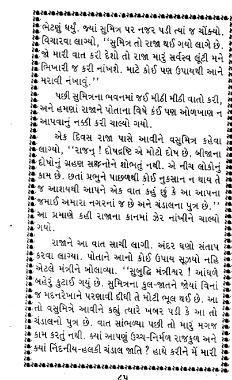 ભેટણું ધર્યું. જ્યાં સુમિત્ર પર નજર પડી ત્યાં જ ચોંક્યો.
વિચારવા લાગ્યો, "સુમિત્ર તો રાજા થઈ ગયો લાગે છે.
જો મારી વાત કરી દેશે તો રાજા મારું સર્વસ્વ લૂંટી મને
ભિખારી જ કરી નાંખશે. માટે કોઈ પણ ઉપાયથી આને
મરાવી નંખાવું."
પછી સુમિત્રના ભવનમાં જઈ મીઠી મીઠી વાતો કરી,
અને હમણાં રાજાને પોતાના વિષે કંઈ પણ ઓળખાણ ન
આપવાનું નક્કી કરી ચાલ્યો ગયો.
એક દિવસ રાજા પાસે આવીને વસુમિત્ર કહેવા
લાગ્યો, "રાજન્ ! દોષદ્રષ્ટિ એ મોટો દોષ છે. બીજાના
દોષોનું ગ્રહણ સજ્જનોને શોભતું નથી. એ નીચ લોકોનું
કામ છે. છતાં પ્રભુને પાછળથી કોઈ નુકસાન ન થાય તે
જ આશયથી આપને એક વાત કહું છું કે આ આપના
જમાઈ અમારા નગરનાં જ છે અને ચંડાલના પુત્ર છે."
આ પ્રમાણે કહી રાજાના કાનમાં ઝેર નાંખીને ચાલ્યો
ગયો.
રાજાને આ વાત સાચી લાગી. અંદર ઘણો સંતાપ
કરવા લાગ્યા. પોતાને આનો કોઈ ઉપાય સૂઝ્યો નહિ
એટલે મંત્રીને બોલાવ્યા. "સુબુદ્ધિ મંત્રીશ્વર ! આંધળે
બહેરું કુટાઈ ગયું છે. સુમિત્રના કુલ-જાતને જોયાં વિનાં
જ મદનરેખાને પરણાવી દીધી તે મોટી ભૂલ થઈ છે. આ
તો વસુમિત્રે આવીને કહ્યું ત્યારે ખબર પડી કે આ તો
ચંડાલનો પુત્ર છે. વાત સાંભળ્યા પછી તો મારું મગજ
કામ કરતું નથી. ક્યાં આપણું ઉચ્ચ-નિર્મળ રાજકુળ અને
ક્યાં નિંદનીય-હલકી ચંડાલ જાતિ ? હાય કરીને મેં મારી
૮૫